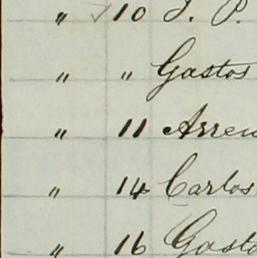 " 10 J. P.
" " Gastos
" 11 Arren
" 14 Carlos
" 16 Gasto